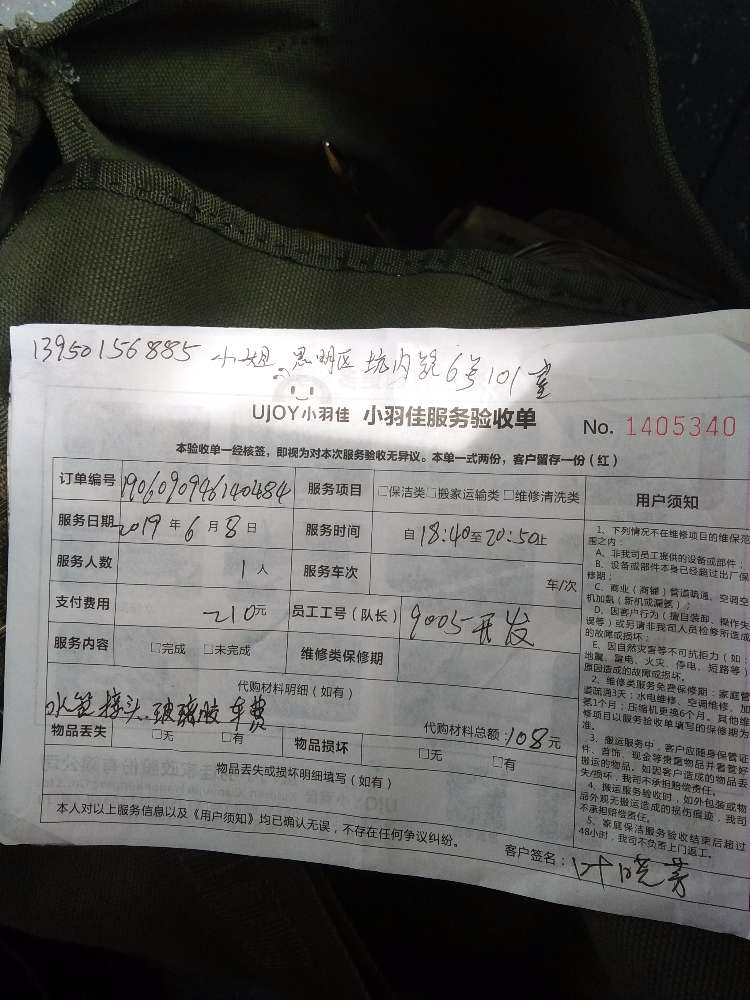 13950156885 小姐 思明区 坑内路6号101室
UJOY小羽佳 小羽佳服务验收单 No. 1405340
本验收单一经核签，即视为对本次服务验收无异议。本单一式两份，客户留存一份（红）
订单编号 1906090946140484 服务项目 □保洁类□搬家运输类□维修清洗类
服务日期 2019 年 6 月 8 日 服务时间 自 18:40 至 20:50止
服务人数 1 人 服务车次 车/次
支付费用 210元 员工工号（队长） 9005 开发
服务内容 □完成 □未完成 维修类保修期
代购材料明细（如有）
水管接头、玻璃胶 车费 代购材料总额：108元
物品丢失 □无 □有 物品损坏 □无 □有
物品丢失或损坏明细填写（如有）
本人对以上服务信息以及《用户须知》均已确认无误，不存在任何争议纠纷。
客户签名：叶晓芳
用户须知
1、下列情况不在维修项目的维保范
围之内：
A、非我司员工提供的设备或部件；
B、设备或部件本身已经超过出厂保
修期；
C、商业（商铺）管道疏通、空调空
机加氨（新机或漏氨）；
D、因客户行为（擅自装卸、操作失
误等）或另请非我司人员检修所造成
的故障或损坏；
E、因自然灾害等不可抗拒力（如：
地震、雷电、火灾、停电、短路等）
原因造成的故障或损坏。
2、维修类服务免费保修期：家庭管
道疏通3天；水电维修、空调维修、加
氨1个月；压缩机更换6个月。其他维
修项目以服务验收单填写的保修期为
准。
3、搬运服务中，客户应随身保管证
件、首饰、现金等贵重物品并看管好
搬运的物品。如因客户造成的物品丢
失/损坏，我司不承担赔偿责任。
4、搬运服务验收时，如外包装或物
品外观无搬运造成的损伤痕迹，我司
不承担赔偿责任。
5、家庭保洁服务验收结束后超过
48小时，我司不负责上门返工。